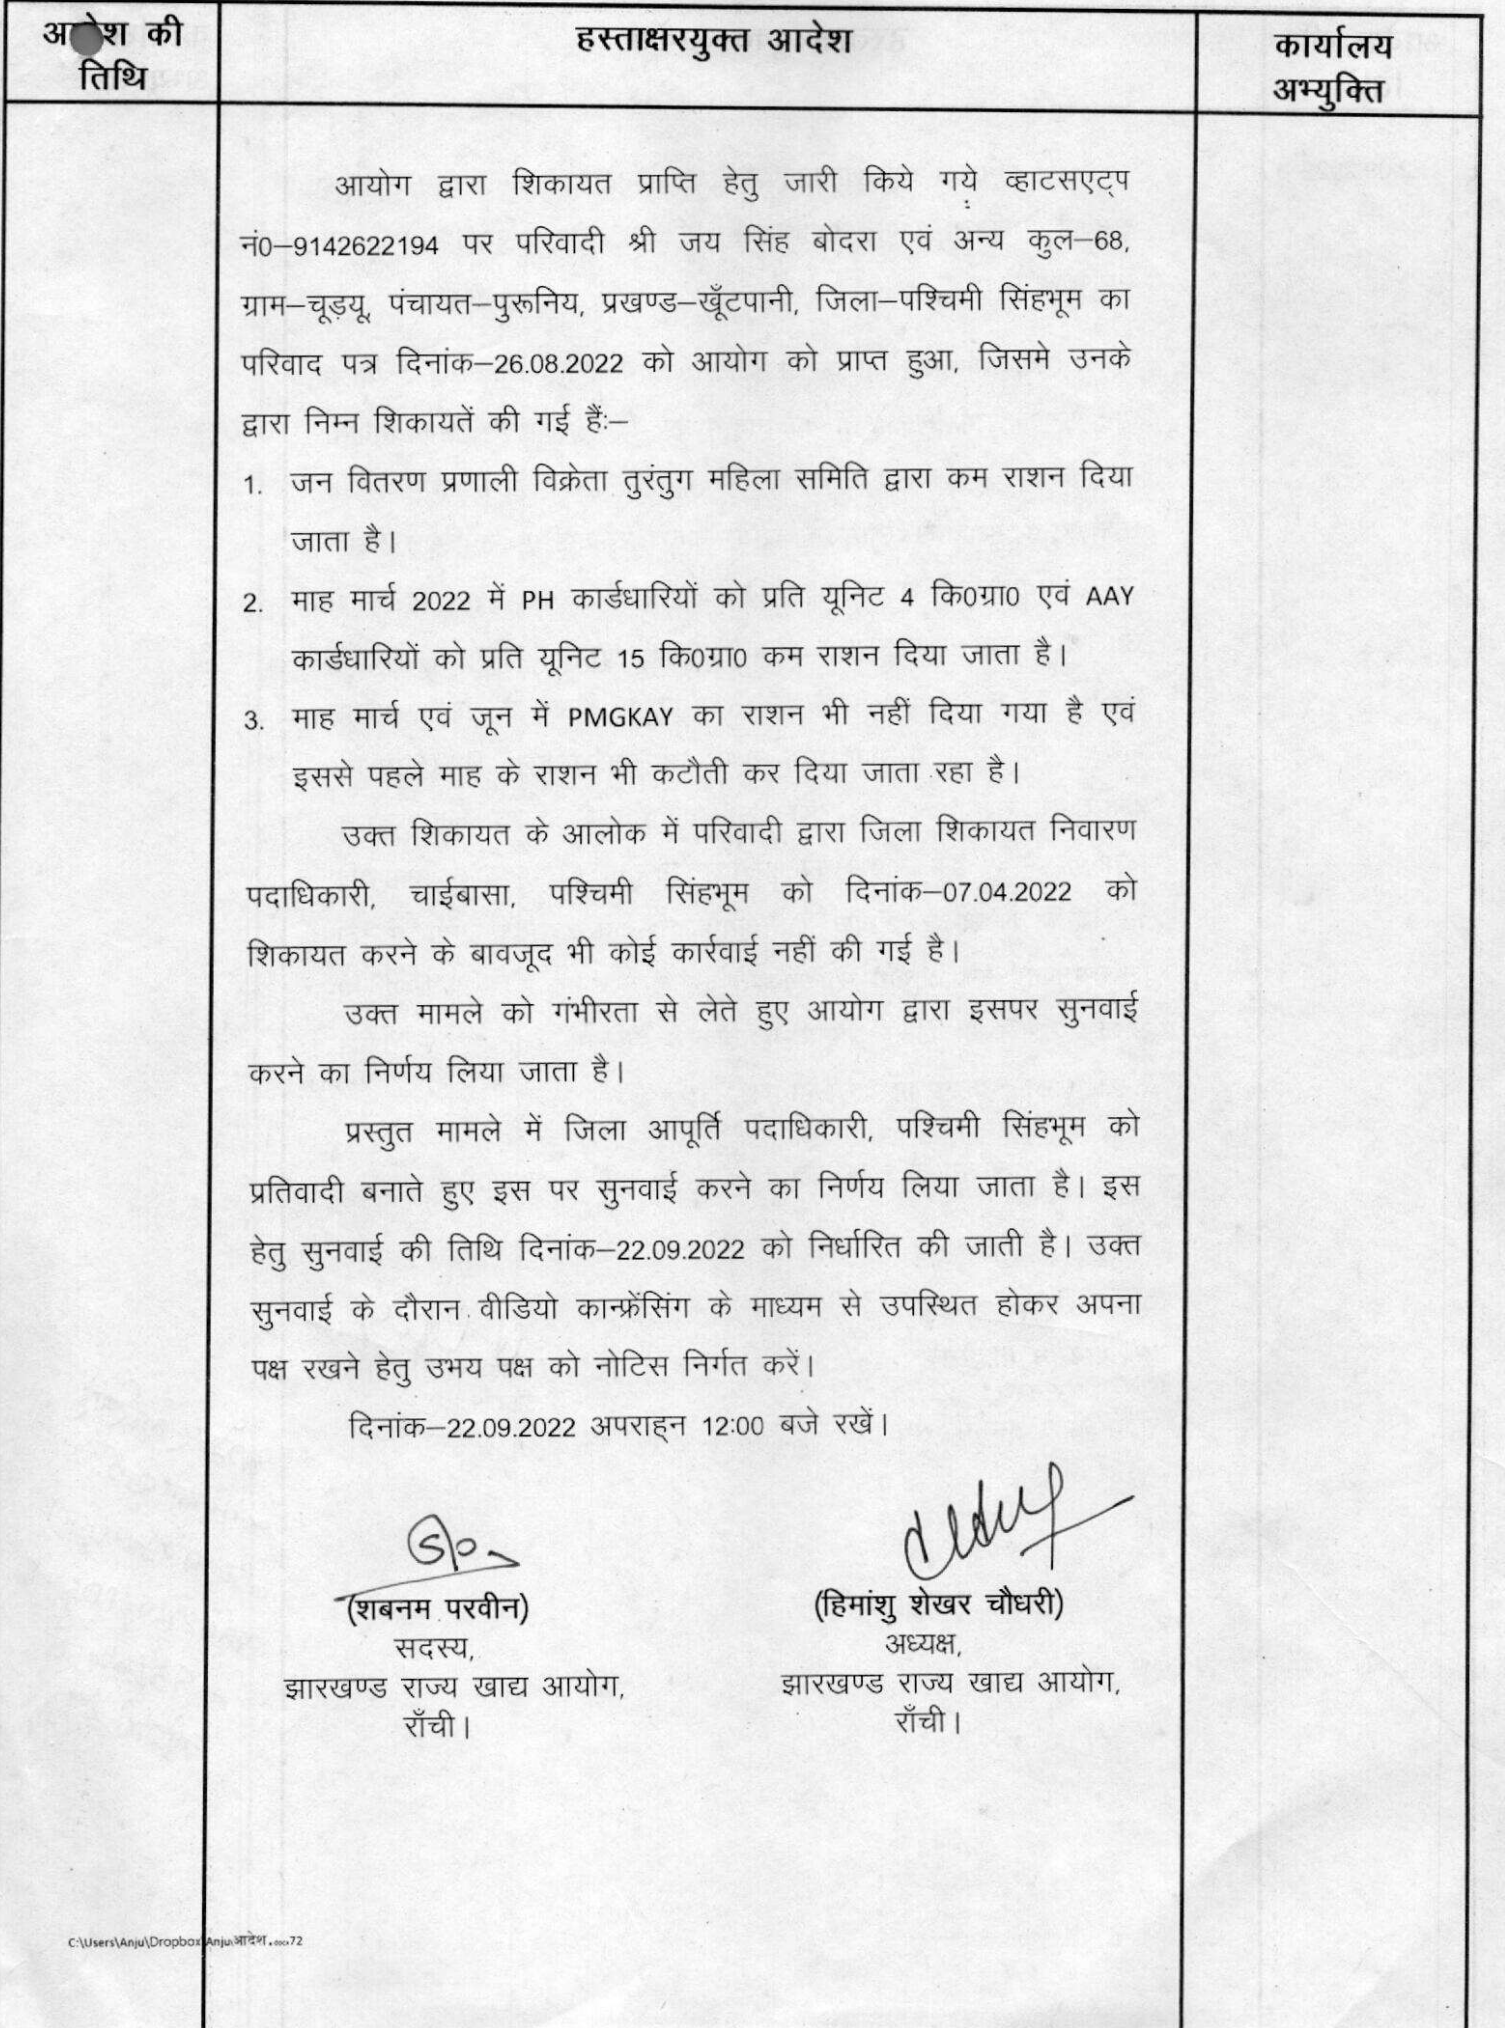 आदेश की
तिथि
हस्ताक्षरयुक्त आदेश
कार्यालय
अभ्युक्ति
आयोग द्वारा शिकायत प्राप्ति हेतु जारी किये गये व्हाटसएट्प
नं0–9142622194 पर परिवादी श्री जय सिंह बोदरा एवं अन्य कुल–68,
ग्राम–चूड़यू, पंचायत–पुरूनिय, प्रखण्ड–खूँटपानी, जिला–पश्चिमी सिंहभूम का
परिवाद पत्र दिनांक–26.08.2022 को आयोग को प्राप्त हुआ, जिसमे उनके
द्वारा निम्न शिकायतें की गई हैंः–
1. जन वितरण प्रणाली विक्रेता तुरंतुग महिला समिति द्वारा कम राशन दिया
जाता है।
2. माह मार्च 2022 में PH कार्डधारियों को प्रति यूनिट 4 कि0ग्रा0 एवं AAY
कार्डधारियों को प्रति यूनिट 15 कि0ग्रा0 कम राशन दिया जाता है।
3. माह मार्च एवं जून में PMGKAY का राशन भी नहीं दिया गया है एवं
इससे पहले माह के राशन भी कटौती कर दिया जाता रहा है।
उक्त शिकायत के आलोक में परिवादी द्वारा जिला शिकायत निवारण
पदाधिकारी, चाईबासा, पश्चिमी सिंहभूम को दिनांक–07.04.2022 को
शिकायत करने के बावजूद भी कोई कार्रवाई नहीं की गई है।
उक्त मामले को गंभीरता से लेते हुए आयोग द्वारा इसपर सुनवाई
करने का निर्णय लिया जाता है।
प्रस्तुत मामले में जिला आपूर्ति पदाधिकारी, पश्चिमी सिंहभूम को
प्रतिवादी बनाते हुए इस पर सुनवाई करने का निर्णय लिया जाता है। इस
हेतु सुनवाई की तिथि दिनांक–22.09.2022 को निर्धारित की जाती है। उक्त
सुनवाई के दौरान वीडियो कान्फ्रेंसिंग के माध्यम से उपस्थित होकर अपना
पक्ष रखने हेतु उभय पक्ष को नोटिस निर्गत करें।
दिनांक–22.09.2022 अपराह्न 12:00 बजे रखें।
(शबनम परवीन)
सदस्य,
झारखण्ड राज्य खाद्य आयोग,
राँची।
(हिमांशु शेखर चौधरी)
अध्यक्ष,
झारखण्ड राज्य खाद्य आयोग,
राँची।
C:\Users\Anju\Dropbox\Anju\आदेश.docx72